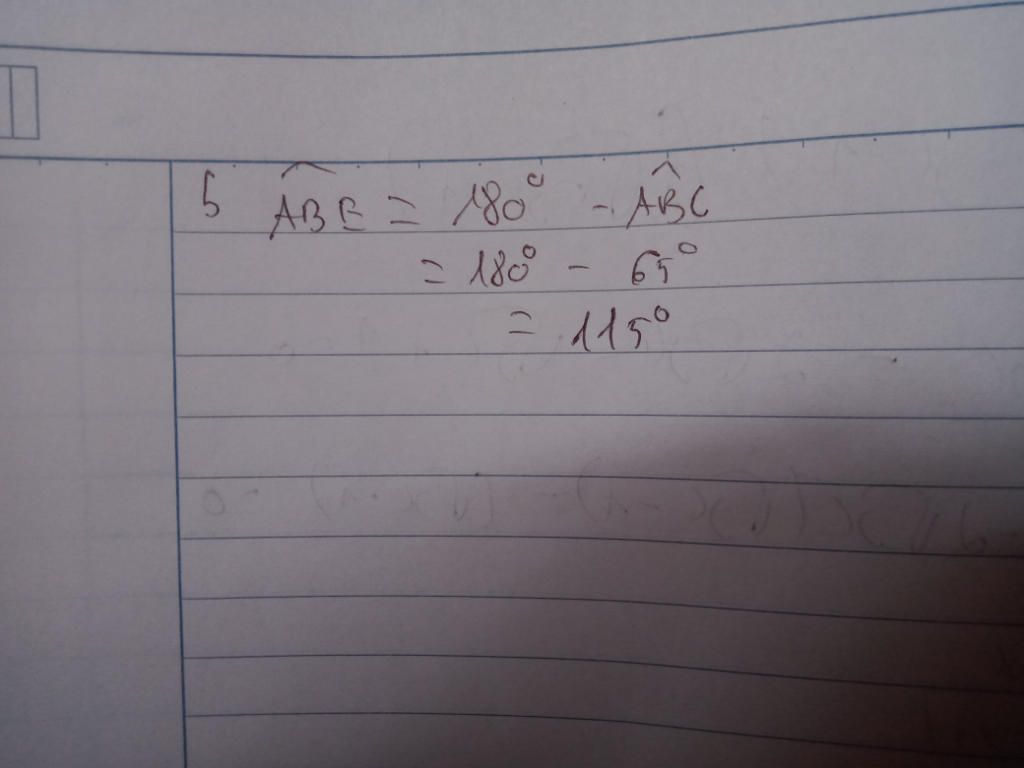 5 \widehat{ABE} = 180° - \widehat{ABC}
= 180° - 65°
= 115°